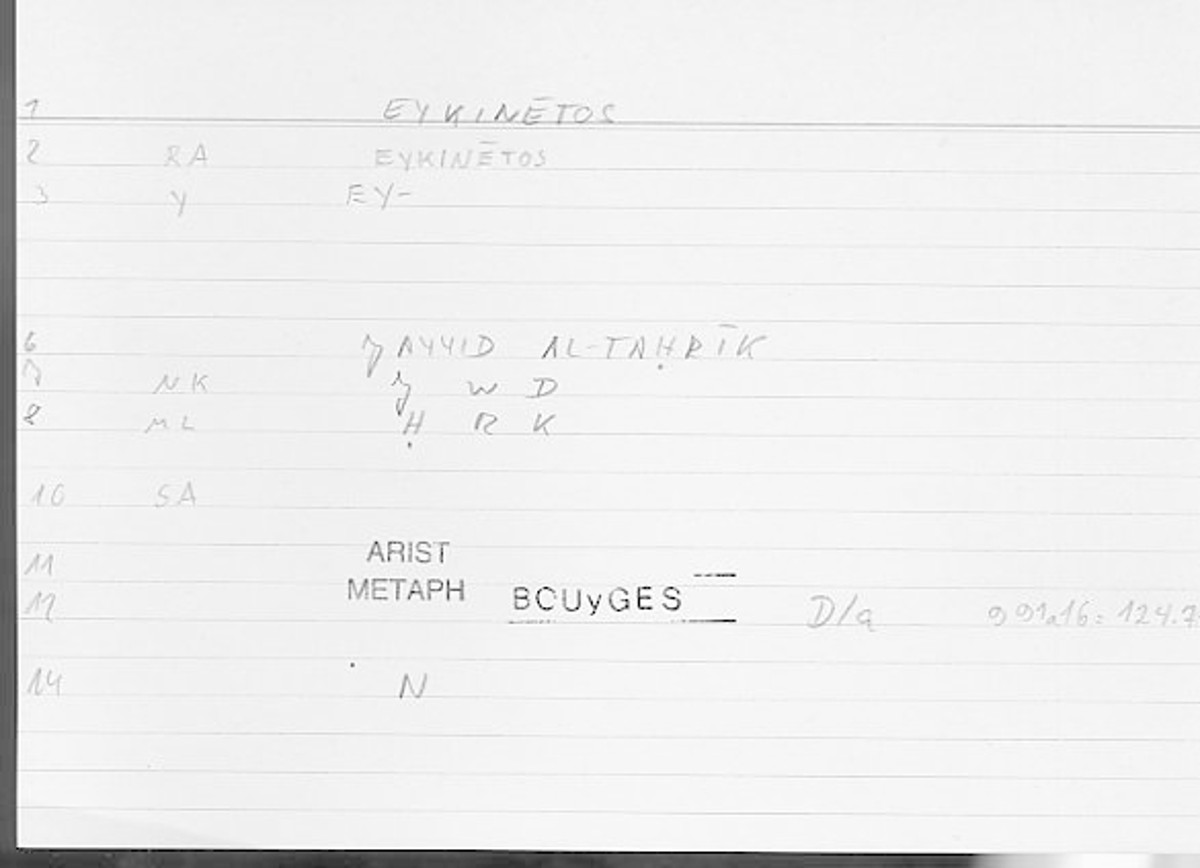 1 EYKINĒTOS
2 RA EYKINĒTOS
3 Y EY-
6 ǧAYYID AL-TAḤRĪK
7 NK ǧ W D
8 ML Ḥ R K
10 SA
11 ARIST
12 METAPH BOUyGES D/a 991a16: 124.7
14 N